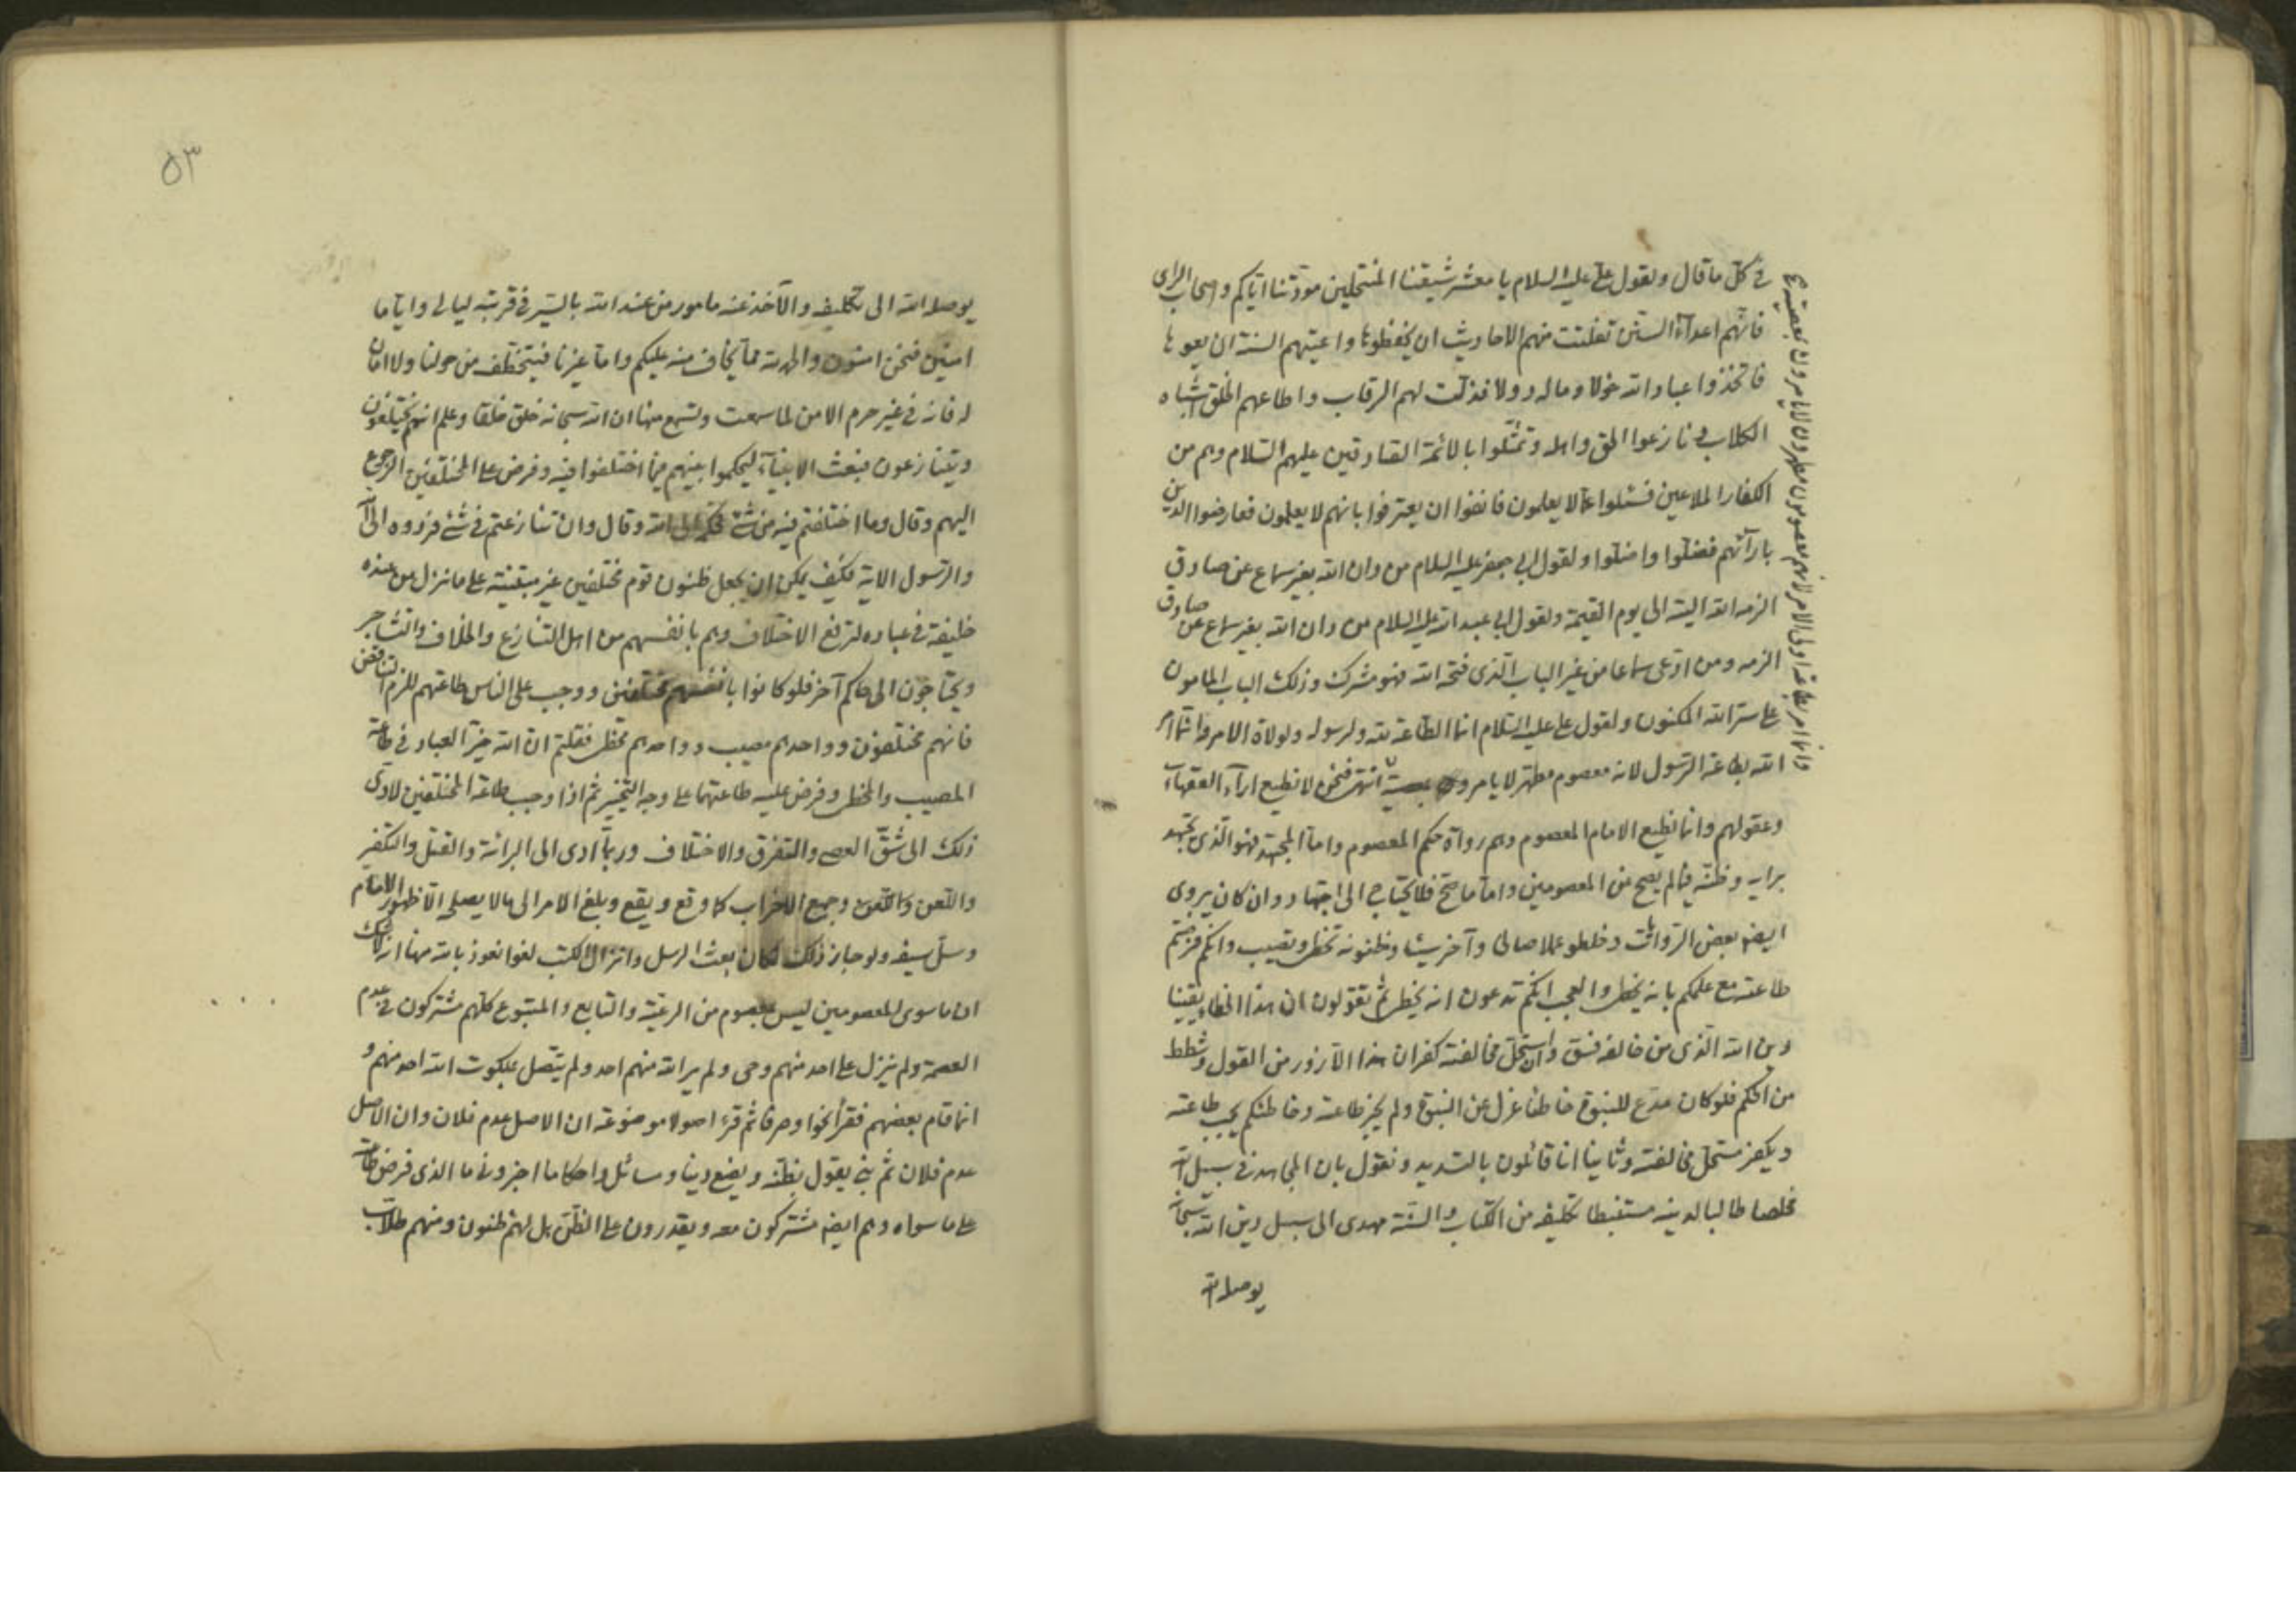 في كل ما قال ولقول علي عليه السلام يا معشر شيعتنا المنتحلين مودتنا اياكم واصحاب الراى
فانهم اعداء السنن تفلتت منهم الاحاديث ان يحفظوها واعيتهم السنة ان يعوها
فاتخذوا عباد الله خولا وماله دولا فذلت لهم الرقاب واطاعهم الخلق اشباه
الكلاب ونازعوا الحق واهله وتمثلوا بالائمة الصادقين عليهم السلام وهم من
الكفار الملاعين فسئلوا عما لا يعلمون فانفوا ان يعترفوا بانهم لا يعلمون فعارضوا الدين
بارآئهم فضلوا واضلوا ولقول ابي جعفر عليه السلام من دان الله بغير سماع عن صادق
الزمه الله البتة الى يوم القيمة ولقول ابي عبد الله عليه السلام من دان الله بغير سماع عن صادق
الزمه ومن ادعى سماعا من غير الباب الذى فتحه الله فهو مشرك وذلك الباب المامون
على سر الله المكنون ولقول علي عليه السلام انما الطاعة لله ولرسوله ولولاة الامر وانما امر
الله بطاعة الرسول لانه معصوم مطهر لا يامر بمعصية انتهى فنحن لا نطيع ارآء الفقهاء
وانما امر بطاعة اولى الامر لانهم معصومون مطهرون لا يامرون بمعصيته
وعقولهم وانما نطيع الامام المعصوم وهم رواة حكم المعصوم واما المجتهد فهو الذى يجتهد
برايه وظنه فيما لم يصح عن المعصومين واما ما صح فلا يحتاج الى اجتهاد وان كان يروى
ايضا بعض الروايات وخلطوا عملا صالحا وآخر سيئا وظنونه تخطى وتصيب وانكم فرضتم
طاعته مع علمكم بانه يخطى والعجب انكم تدعون انه يخطى ثم تقولون ان هذا الخطاء يقينا
دين الله الذى من خالفه فسق وان استحل مخالفته كفر ان هذا الا زور من القول وشطط
من الحكم فلو كان مدع للنبوة خاطئا عزل عن النبوة ولم يجز طاعته وخاطئكم يجب طاعته
ويكفر مستحل مخالفته وثانيا انا قائلون بالتسديد ونقول بان المجاهد في سبيل الله
مخلصا طالبا لدينه مستنبطا تكليفه من الكتاب والسنة مهدى الى سبيل دين الله سبحانه
يوصله الله
٥٣
يوصله الله الى تكليفه والآخذ عنه مامور من عند الله بالسير في قريته ليالى واياما
امنين فنحن امنون والحمد لله مما يخاف منه عليكم واما غيرنا فيتخطف من حولنا ولا امان
له فانه في غير حرم الامن لما سمعت وتسمع منها ان الله سبحانه خلق خلقا وعلم انهم يختلفون
ويتنازعون فبعث الانبياء ليحكموا بينهم فيما اختلفوا فيه وفرض على المختلفين الرجوع
اليهم وقال وما اختلفتم فيه من شئ فحكمه الى الله وقال وان تنازعتم في شئ فردوه الى الله
والرسول الاية فكيف يمكن ان يجعل ظنون قوم مختلفين غير مبتنية على ما نزل من عنده
خليفة في عباده لترفع الاختلاف وهم بانفسهم من اهل التنازع والخلاف والتشاجر
ويحتاجون الى حاكم آخر فلو كانوا بانفسهم مختلفين ووجب على الناس طاعتهم للزم التناقض
فانهم مختلفون وواحدهم مصيب وواحدهم مخطى فقلتم ان الله خير العباد في طاعة
المصيب والمخطى وفرض عليه طاعتهما على وجه التخيير ثم اذا وجب طاعة المختلفين لادى
ذلك الى شق العصى والتفرق والاختلاف وربما ادى الى البرائة والقتل والتكفير
واللعن وجميع الاحزاب كما وقع ويقع وبلغ الامر الى ما لا يصلحه الا ظهور الامام
وسل سيفه ولو جاز ذلك لكان بعث الرسل وانزال الكتب لغوا نعوذ بالله منها
ان ما سوى المعصومين ليس بمعصوم من الرعية والتابع والمتبوع كلهم مشتركون في عدم
العصمة ولم ينزل على احد منهم وحى ولم ير الله منهم احد ولم يتصل بملكوت الله احد منهم و
انما قام بعضهم فقرأ نحوا وصرفا ثم قرء اصولا موضوعة ان الاصل عدم فلان وان الاصل
عدم فلان ثم بنى يقول بظنه ويضع دينا ومسائل واحكاما اخبرونا ما الذى فرض طاعته
على ما سواه وهم ايضا مشتركون معه ويقدرون على الظن بل لهم ظنون ومنهم طلاب